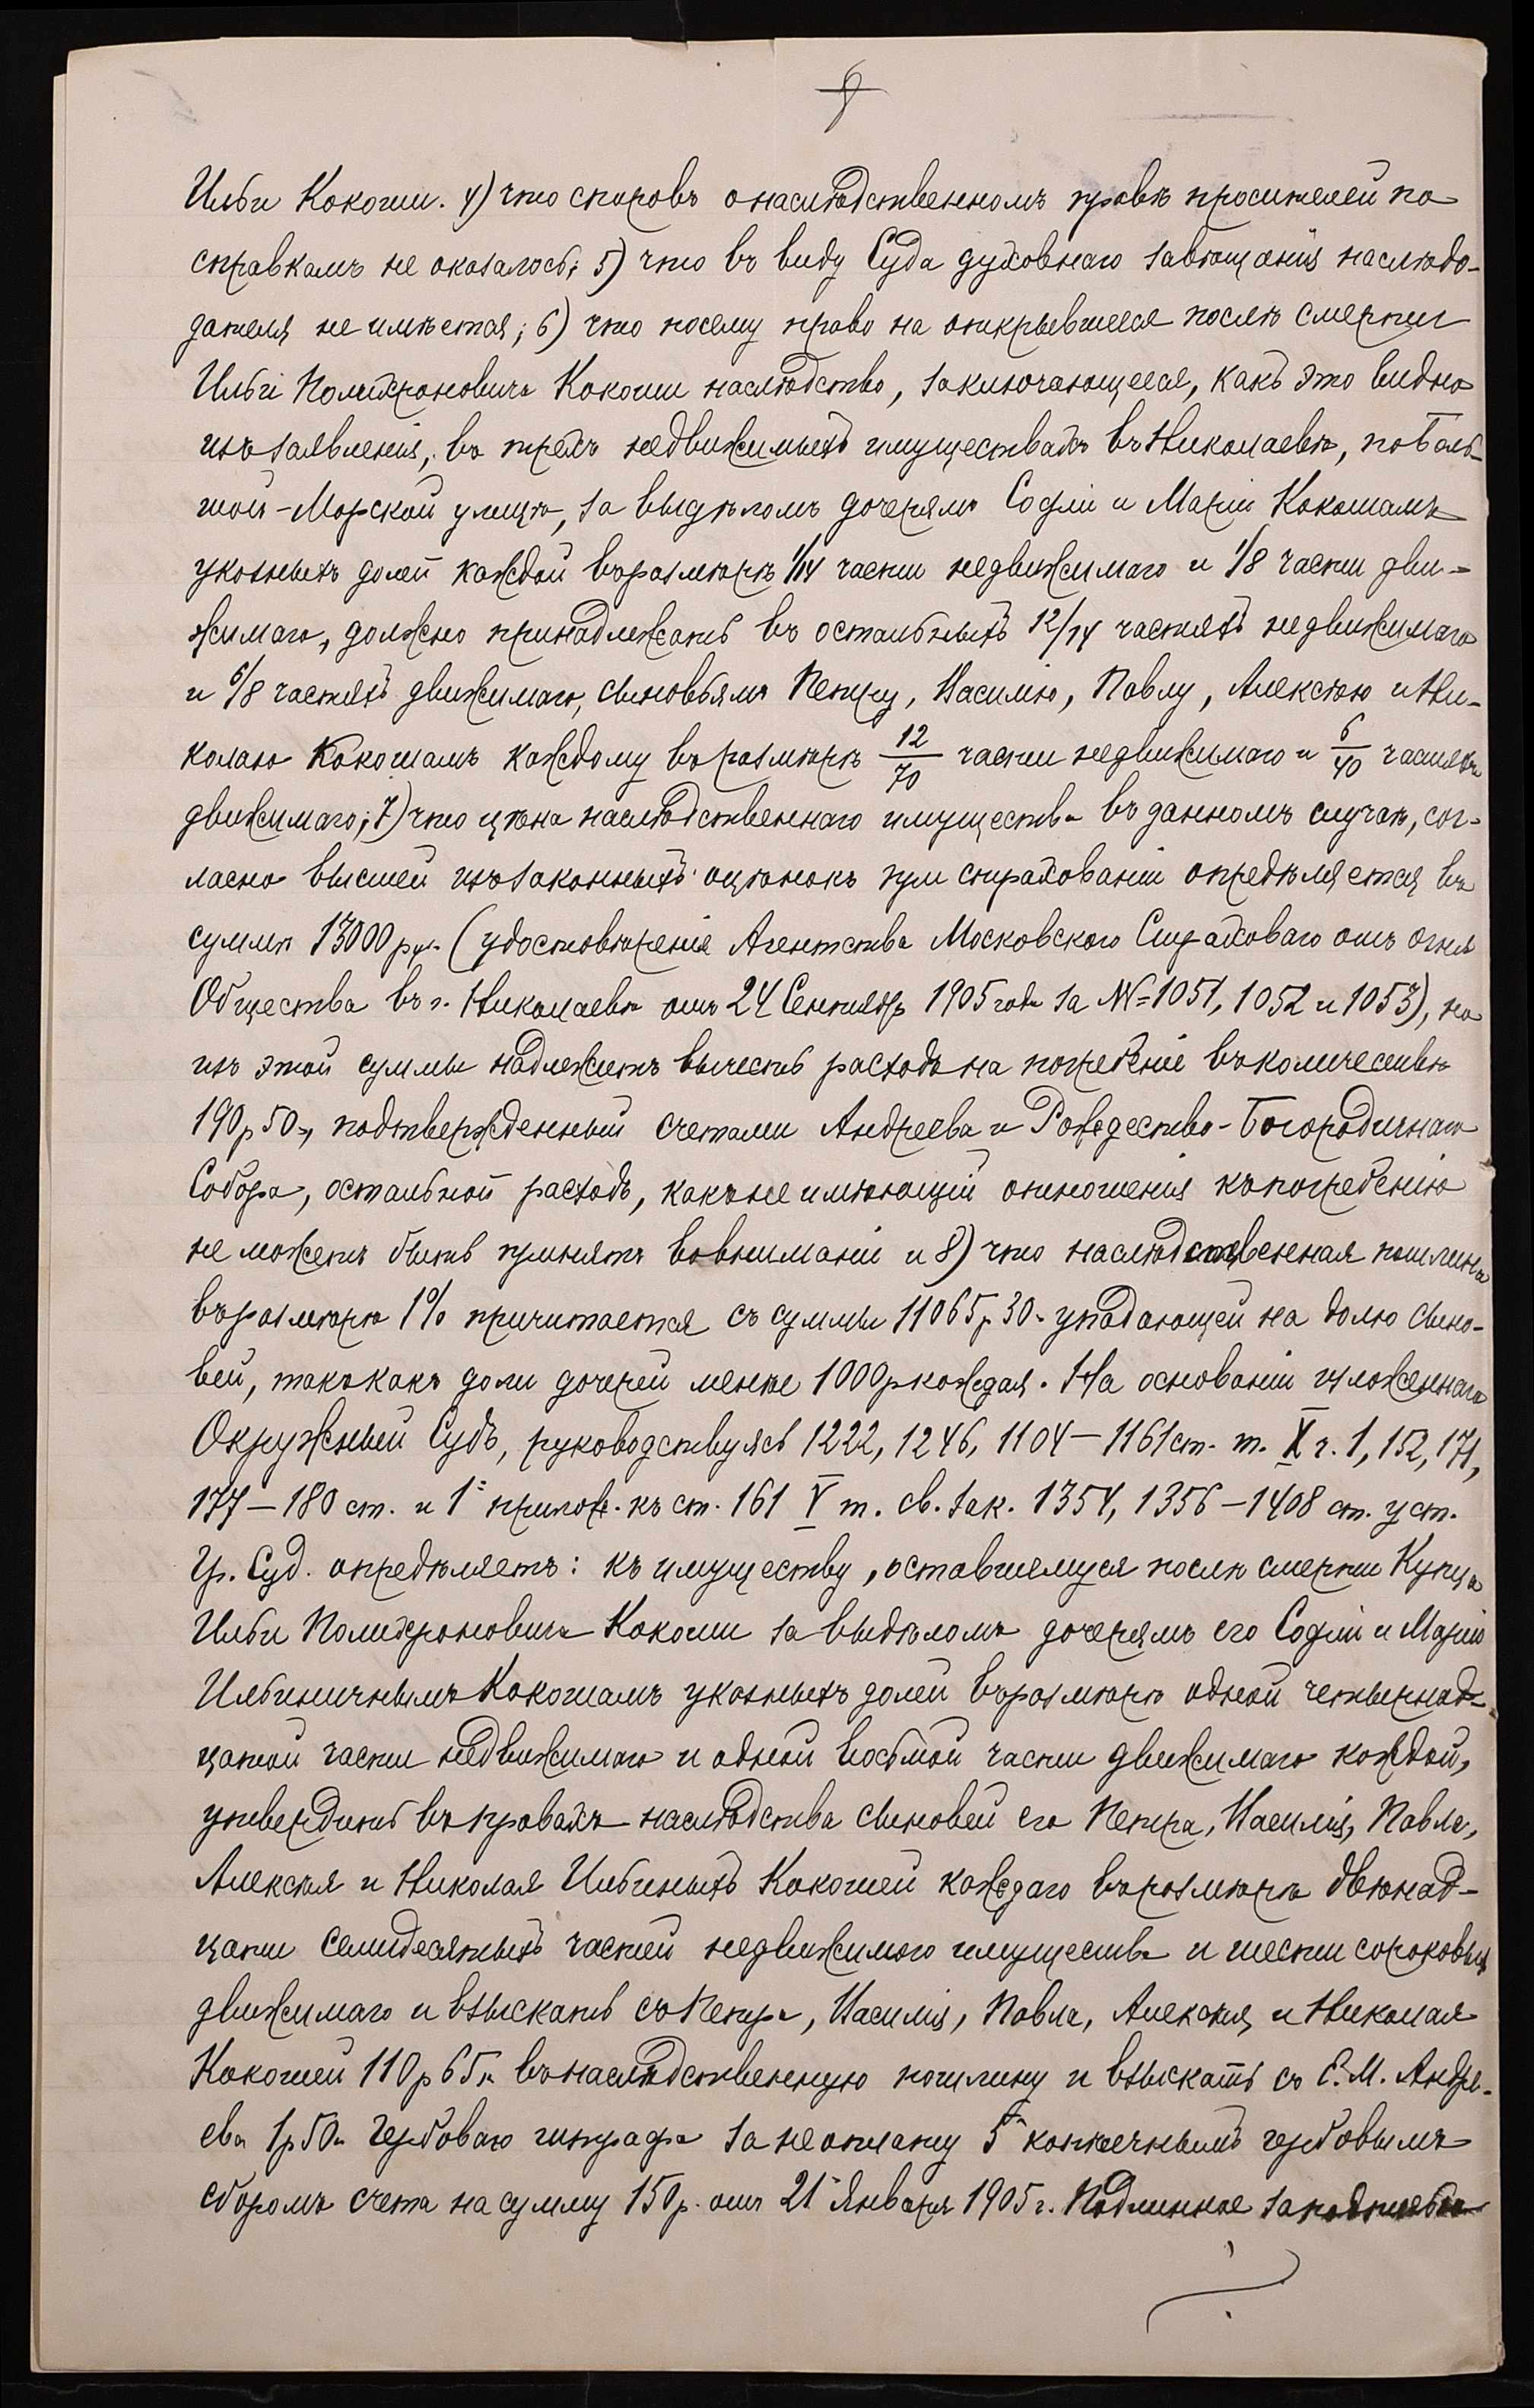 Ильи Кокоши. 4) что споровъ о наслѣдственномъ правѣ просителей по
справкамъ не оказалось; 5) что въ виду Суда духовнаго завѣщанія наслѣдо-
дателя не имѣется; 6) что посему право на открывшееся послѣ смерти
Ильи Полихроновича Кокоши наслѣдство, заключающееся, какъ это видно
изъ заявленія, въ трехъ недвижимыхъ имуществахъ въ Николаевѣ, по Боль-
шой-Морской улицѣ, за выдѣломъ дочерямъ Софіи и Маріи Кокошамъ
указныхъ долей каждой въ размѣрѣ 1/14 части недвижимаго и 1/8 части дви-
жимаго, должно принадлежать въ остальныхъ 12/14 частяхъ недвижимаго
и 6/8 частяхъ движимаго, сыновьямъ Петру, Василію, Павлу, Алексѣю и Ни-
колаю Кокошамъ каждому въ размѣрѣ 12/70 части недвижимаго и 6/40 частяхъ
движимаго; 7) что цѣна наслѣдственнаго имущества въ данномъ случаѣ, сог-
ласно высшей изъ законныхъ оцѣнокъ при страхованіи опредѣляется въ
суммѣ 13000 руб. (удостовѣренія Агентства Московского Страховаго отъ огня
Общества въ г. Николаевѣ отъ 24 Сентября 1905 года за №= 1051, 1052 и 1053), но
изъ этой суммы надлежитъ вычесть расходъ на погребеніе въ количествѣ
190 р 50 к, подтвержденный счетами Андреева и Рождество-Богородичнаго
Собора, остальной расходъ, какъ не имѣющій отношенія къ погребенію
не можетъ быть принятъ во вниманіе и 8) что наслѣдственная пошлина
въ размѣрѣ 1% причитается съ суммы 11065 р. 30 к упадающей на долю сыно-
вей, такъ какъ доли дочерей менѣе 1000 р каждая. На основаніи изложеннаго
Окружный Судъ, руководствуясь 1222, 1246, 1104 – 1161 ст. т. X ч. 1, 152, 171,
177 – 180 ст. и 1= прилож. къ ст. 161 V т. св. зак. 1354, 1356 – 1408 ст. уст.
Гр. Суд. опредѣляетъ: къ имуществу, оставшемуся послѣ смерти Купца
Ильи Полихроновича Кокоши за выдѣломъ дочерямъ его Софіи и Маріи
Ильиничнымъ Кокошамъ указныхъ долей въ размѣрѣ одной четырнад-
цатой части недвижимаго и одной восьмой части движимаго каждой,
утвердить въ правахъ наслѣдства сыновей его Петра, Василія, Павла,
Алексѣя и Николая Ильиныхъ Кокошей каждаго въ размѣрѣ двѣнад-
цати семидесятыхъ частей недвижимого имущества и шести сороковыхъ
движимаго и взыскать съ Петра, Василія, Павла, Алексѣя и Николая
Кокошей 110 р 65 к въ наслѣдственную пошлину и взыскать съ С. М. Андре-
ева 1 р 50 к гербоваго штрафа за неоплату 5 копѣечнымъ гербовымъ
сборомъ счета на сумму 150 р. отъ 21 Января 1905 г. Подлинное за подписью